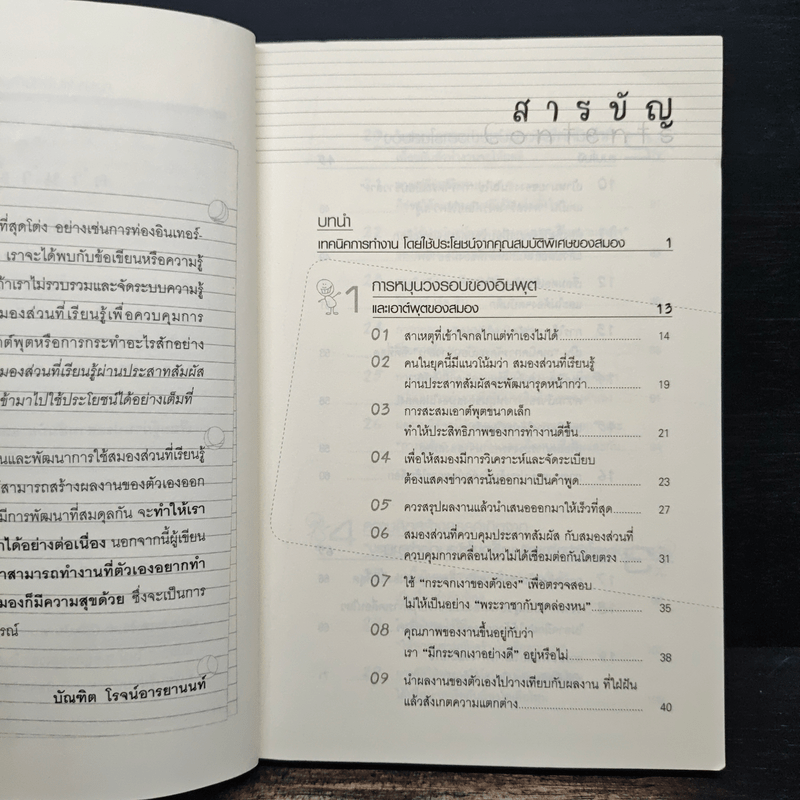 ที่สุดโต่ง อย่างเช่นการท่องอินเทอร์-
เราจะได้พบกับข้อเขียนหรือความรู้
ถ้าเราไม่รวบรวมและจัดระบบความรู้
มองส่วนที่เรียนรู้เพื่อควบคุมการ
าต์พุตหรือการกระทำอะไรสักอย่าง
มองส่วนที่เรียนรู้ผ่านประสาทสัมผัส
ข้ามาไปใช้ประโยชน์ได้อย่างเต็มที่
นและพัฒนาการใช้สมองส่วนที่เรียนรู้
สามารถสร้างผลงานของตัวเองออก
มีการพัฒนาที่สมดุลกัน จะทำให้เรา
าได้อย่างต่อเนื่อง นอกจากนี้ผู้เขียน
าสามารถทำงานที่ตัวเองอยากทำ
มองก็มีความสุขด้วย ซึ่งจะเป็นการ
รณ์
บัณฑิต โรจน์อารยานนท์
สารบัญ
Contents
บทนำ
เทคนิคการทำงาน โดยใช้ประโยชน์จากคุณสมบัติพิเศษของสมอง 1
1 การหมุนวงรอบของอินพุต
และเอาต์พุตของสมอง 13
01 สาเหตุที่เข้าใจกลไกแต่ทำเองไม่ได้ 14
02 คนในยุคนี้มีแนวโน้มว่า สมองส่วนที่เรียนรู้
ผ่านประสาทสัมผัสจะพัฒนารุดหน้ากว่า 19
03 การสะสมเอาต์พุตขนาดเล็ก
ทำให้ประสิทธิภาพของการทำงานดีขึ้น 21
04 เพื่อให้สมองมีการวิเคราะห์และจัดระเบียบ
ต้องแสดงข่าวสารนั้นออกมาเป็นคำพูด 23
05 ควรสรุปผลงานแล้วนำเสนอออกมาให้เร็วที่สุด 27
06 สมองส่วนที่ควบคุมประสาทสัมผัส กับสมองส่วนที่
ควบคุมการเคลื่อนไหวไม่ได้เชื่อมต่อกันโดยตรง 31
07 ใช้ "กระจกเงาของตัวเอง" เพื่อตรวจสอบ
ไม่ให้เป็นอย่าง "พระราชากับชุดล่องหน" 35
08 คุณภาพของงานขึ้นอยู่กับว่า
เรา "มีกระจกเงาอย่างดี" อยู่หรือไม่ 38
09 นำผลงานของตัวเองไปวางเทียบกับผลงาน ที่ใฝ่ฝัน
แล้วสังเกตความแตกต่าง 40